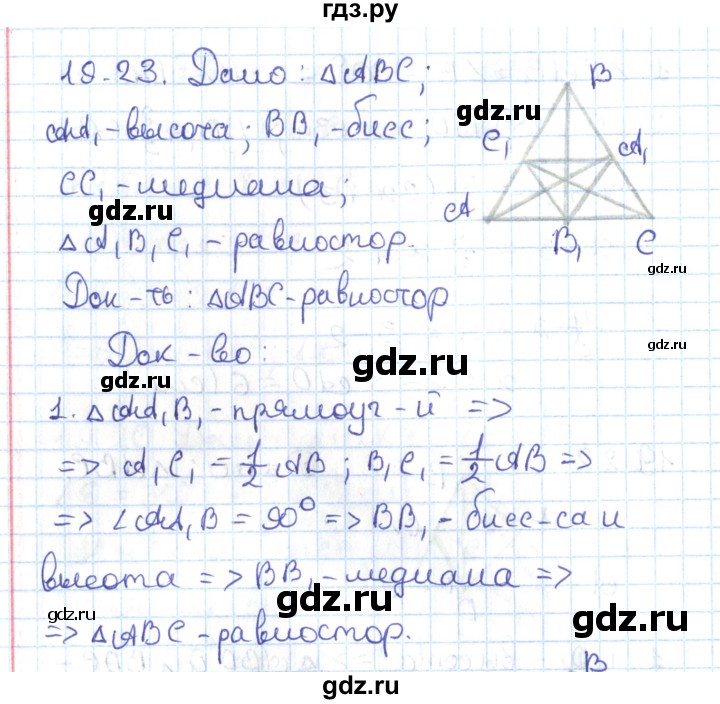 гдз.ру
19.23. Дано: △ABC;
AA₁-высота; BB₁-бисс;
CC₁-медиана;
△A₁B₁C₁-равностор.
Док-ть: △ABC-равностор
Док-во:
1. △AA₁B₁-прямоуг-й =>
=> A₁C₁ = 1/2 AB; B₁C₁ = 1/2 AB =>
=> ∠AA₁B = 90° => BB₁-бисс-са и
высота => BB₁-медиана =>
=> △ABC-равностор.
B
C₁
A₁
A
B₁
C
B
gdz.ru
gdz.ru
gdz.ru
gdz.ru
gdz.ru
gdz.ru
gdz.ru
gdz.ru
gdz.ru
gdz.ru